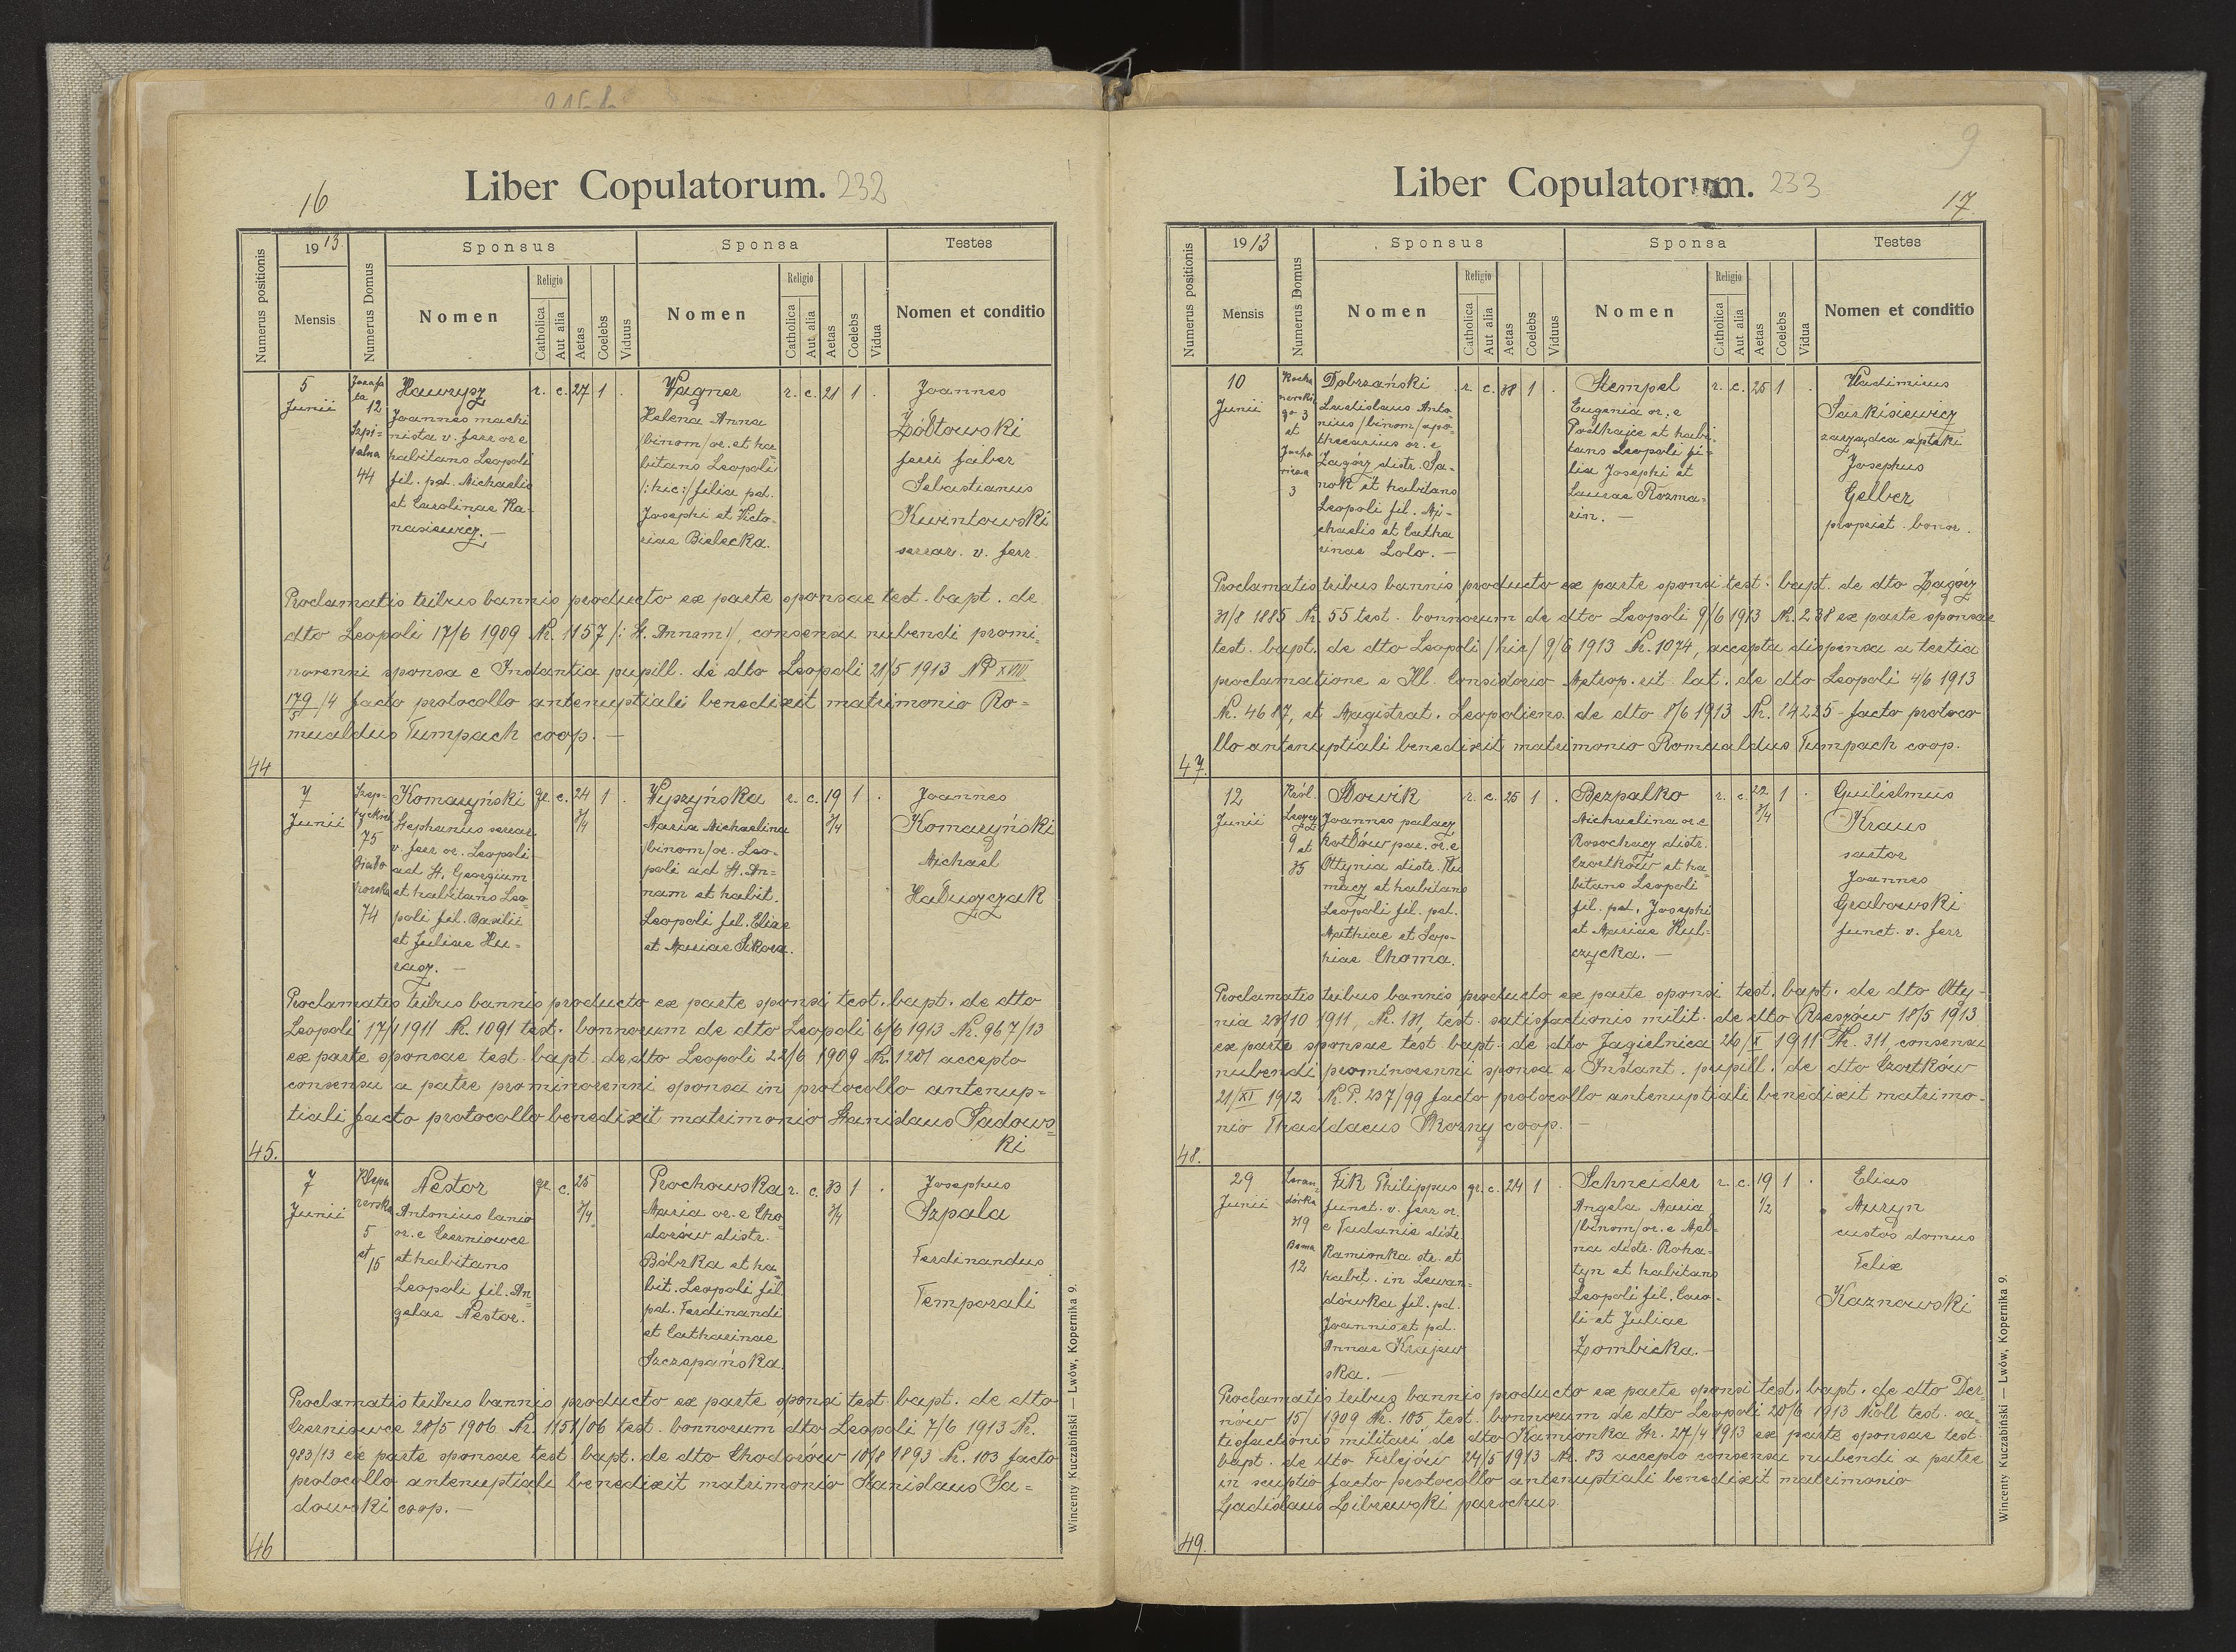 16
Liber Copulatorum. 232
Numerus positionis
1913.
Mensis
Numerus Domus
Sponsus
Nomen
Religio
Catholica
Aut alia
Aetas
Coelebs
Viduus
Sponsa
Nomen
Religio
Catholica
Aut alia
Aetas
Coelebs
Vidua
Testes
Nomen et conditio
44
5
Junii
12
Szpi-
talna
44
Hawrysz
Joannes machi
nista v. ferr or e
habitans Leopoli
fil. pd. Michaelis
et Carolinae Ka-
nasiewicz. —
r. c. 27 1 .
Wagner
Helena Anna
/binom/ or. et ha-
bitans Leopoli
/:hic:/ filia pd.
Josephi et Victo-
riae Bielecka.
r. c. 21 1 .
Joannes
Żółtowski
ferri faber
Sebastianus
Kwintowski
serrar. v. ferr.
Proclamatis tribus bannis producto ex parte sponsae test. bapt. de
dto Leopoli 17/6 1909 Nr. 1157 /: St. Annam:/, consensu nubendi promi-
norenni sponsa e Instantia pupill. de dto Leopoli 21/5 1913 NP XVIII
179/5 /4 facto protocollo antenuptiali benedixit matrimonio Ro-
mualdus Tumpach coop. —
45.
7
Junii
Szep-
tyckich
75
74
Komaryński
Stephanus serrar.
v. ferr or. Leopoli
ad St. Georgium
et habitans Leo-
poli fil. Basilii
et Juliae Hu-
racz. —
gr. c. 24 3/4 1 .
Wyszyńska
Maria Michaelina
/binom/ or. Leo-
poli ad St. An-
nam et habit.
Leopoli fil. Eliae
et Mariae Sikora.
r. c. 19 3/4 1 .
Joannes
Komaryński
Michael
Habuszczak
Proclamatis tribus bannis producto ex parte sponsi test. bapt. de dto
Leopoli 17/1 1911 Nr. 1091 test. bonnorum de dto Leopoli 6/6 1913 Nr. 967/13
ex parte sponsae test. bapt. de dto Leopoli 22/6 1909 Nr. 1201 accepto
consensu a patre prominorenni sponsa in protocollo antenup-
tiali facto protocollo benedixit matrimonio Stanislaus Sadows-
ki
46
7
Junii
Klepa
rowska
5
et
15
Nestor
Antonius lanio
or. e Czerniowce
et habitans
Leopoli fil. An-
gelae Nestor.
gr. c. 25 3/4
Prochowska
Maria or. e Cho-
dorów distr.
Bóbrka et ha-
bit. Leopoli fil
pd. Ferdinandi
et Catharinae
Szczepańska.
r. c. 33 3/4 1 .
Josephus
Szpala
Ferdinandus
Temporali
Proclamatis tribus bannis producto ex parte sponsi test. bapt. de dto
Czerniowce 28/5 1906 Nr. 1151/06 test. bonnorum dto Leopoli 7/6 1913 Nr.
983/13 ex parte sponsae test bapt. de dto Chodorów 10/8 1893 Nr. 103 facto
protocollo antenuptiali benedixit matrimonio Stanislaus Sa-
dowski coop. —
Wincenty Kuczabiński — Lwów, Kopernika 9.
9
17
Liber Copulatorum. 233
Numerus positionis
1913
Mensis
Numerus Domus
Sponsus
Nomen
Religio
Catholica
Aut alia
Aetas
Coelebs
Viduus
Sponsa
Nomen
Religio
Catholica
Aut alia
Aetas
Coelebs
Vidua
Testes
Nomen et conditio
47.
10
Junii
Kocha
nowskie
go 3
et
Jacho
wicza
3
Dobrzański
Ladislaus Anto-
nius /binom/ apo-
thecarius or. e
Zagórz distr. Sa-
nok et habitans
Leopoli fil. Mi-
chaelis et Catha
rinae Lolo. —
r. c. 38 1 .
Stempel
Eugenia or. e
Podhajce et habi-
tans Leopoli fi-
lia Josephi et
Laurae Rozma-
rin. —
r. c. 25 1 .
Vladimirus
Sarkisiewicz
zarządca apteki
Josephus
Gelber
propriet. bonor.
Proclamatis tribus bannis producto ex parte sponsi test. bapt. de dto Zagórz
31/8 1885 Nr. 55 test. bonnorum de dto Leopoli 9/6 1913 Nr. 238 ex parte sponsae
test. bapt. de dto Leopoli /hic/ 9/6 1913 Nr. 1074, accepta dispensa a tertia
proclamatione e Ill. Consistorio Metrop. rit. lat. de dto Leopoli 4/6 1913
Nr. 4687, et Magistrat. Leopoliens. de dto 8/6 1913 Nr. 84225 facto protoco
llo antenuptiali benedixit matrimonio Romualdus Tumpach coop.
48.
12
Junii
Król.
9 et
35
Słowik
Joannes palacz
kotłów par. or. e
Ottynia distr. Tłu
macz et habitans
Leopoli fil. pd.
Mathiae et Sop-
hiae Choma.
r. c. 25 1 .
Bezpalko
Michaelina or. e
Rosochacz distr.
Czortków et ha-
bitans Leopoli
fil. pd. Josephi
et Mariae Hul-
czycka. —
r. c. 22 3/4 1 .
Guilielmus
Kraus
sartor
Joannes
Grabowski
funct. v. ferr
Proclamatis tribus bannis producto ex parte sponsi test. bapt. de dto Otty-
nia 28/10 1911, Nr. 181, test. satisfactionis milit. de dto Rzeszów 18/5 1913
ex parte sponsae test. bapt. de dto Jagielnica 26/X 1911 Nr. 311 consensu
nubendi prominorenni sponsa e Instant. pupill. de dto Czortków
21/XI 1912 Nr. P. 237/99 facto protocollo antenuptiali benedixit matrimo-
nio Thaddaeus Skorny coop. —
49.
29
Junii
Lewan-
dówka
12
Fik Philippus
funct. v. ferr or.
e Tadanie distr.
Kamionka str. et
habit. in Lewan-
dówka fil. pd.
Joannis et pd.
Annae Krajew
ska. —
gr. c. 24 1 .
Schneider
Angela Maria
/binom/ or. e Mel-
na distr. Roha-
tyn et habitans
Leopoli fil. Caro-
li et Juliae
Zombicka. —
r. c. 19 1/2 1 .
Elias
Muryn
custos domus
Felix
Kaznowski
Proclamatis tribus bannis producto ex parte sponsi test. bapt. de dto Der-
nów 15/ 1909 Nr. 105 test. bonnorum de dto Leopoli 20/6 1913 Noll test. sa-
tisfactionis militari de dto Kamionka Str. 27/4 1913 ex parte sponsae test.
bapt. de dto Firlejów 24/5 1913 Nr. 83 accepto consensu nubendi a patre
in scriptio facto protocollo antenuptiali benedixit matrimonio
Ladislaus Librewski parochus.
Wincenty Kuczabiński — Lwów, Kopernika 9.